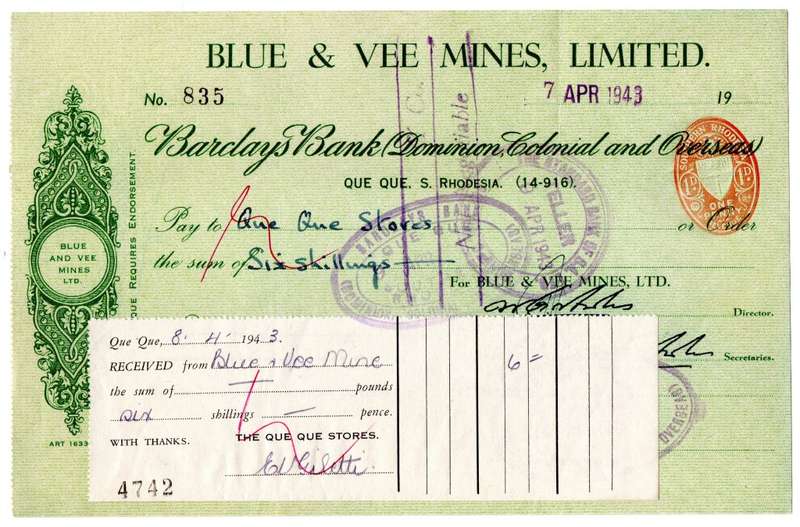 BLUE & VEE MINES, LIMITED.
No. 835
7 APR 1943 19
Barclays Bank (Dominion, Colonial and Overseas)
QUE QUE, S. RHODESIA. (14-916).
Pay to Que Que Stores or Order
the sum of Six shillings
For BLUE & VEE MINES, LTD.
Director.
Secretaries.
BLUE
AND VEE
MINES
LTD.
REQUIRES ENDORSEMENT
ART 1633
SOUTHERN RHODESIA
1D. 1D.
ONE
BARCLAYS BANK
QUE QUE
TELLER
APR 1943
Que Que, 8·4· 1943.
RECEIVED from Blue & Vee Mine
the sum of — pounds
six shillings — pence.
WITH THANKS. THE QUE QUE STORES.
6=
4742